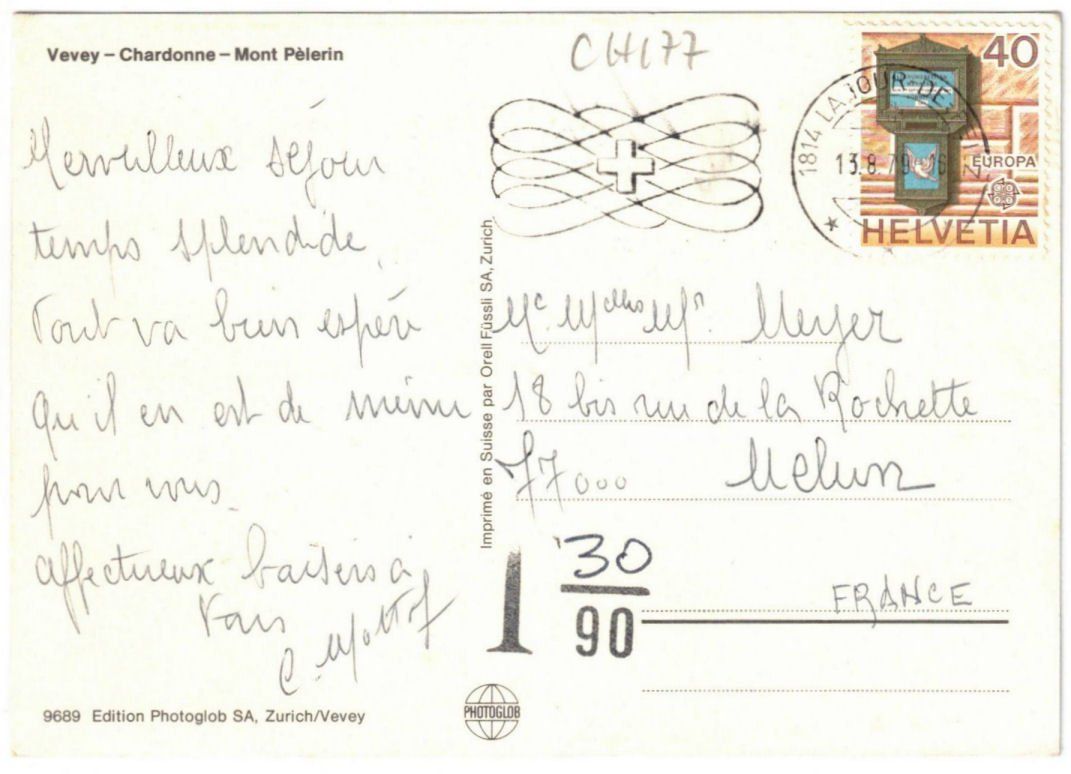 Vevey – Chardonne – Mont Pèlerin
CH177
Merveilleux séjour
temps splendide,
Tout va bien espère
qu'il en est de même
pour vous.
affectueux baisers à
Tous
9689 Edition Photoglob SA, Zurich/Vevey
Imprimé en Suisse par Orell Füssli SA, Zurich
PHOTOGLOB
1814 LA TOUR-DE-
13.8.79-16
40
EUROPA
HELVETIA
Meyer
18 bis rue de la Rochette
77000 Melun
T 30
90
FRANCE